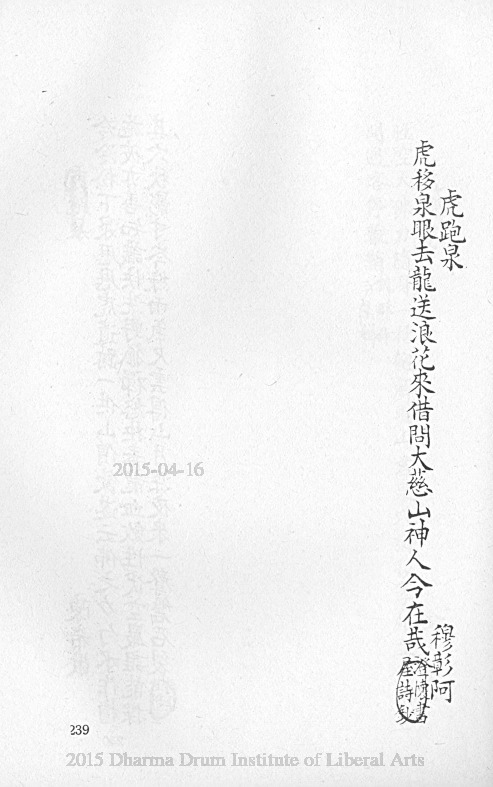 虎跑泉
穆彰阿
虎移泉眼去龍送浪花來借問大慈山神人今在哉
澄懷書
屋詩鈔
2015-04-16
239
2015 Dharma Drum Institute of Liberal Arts